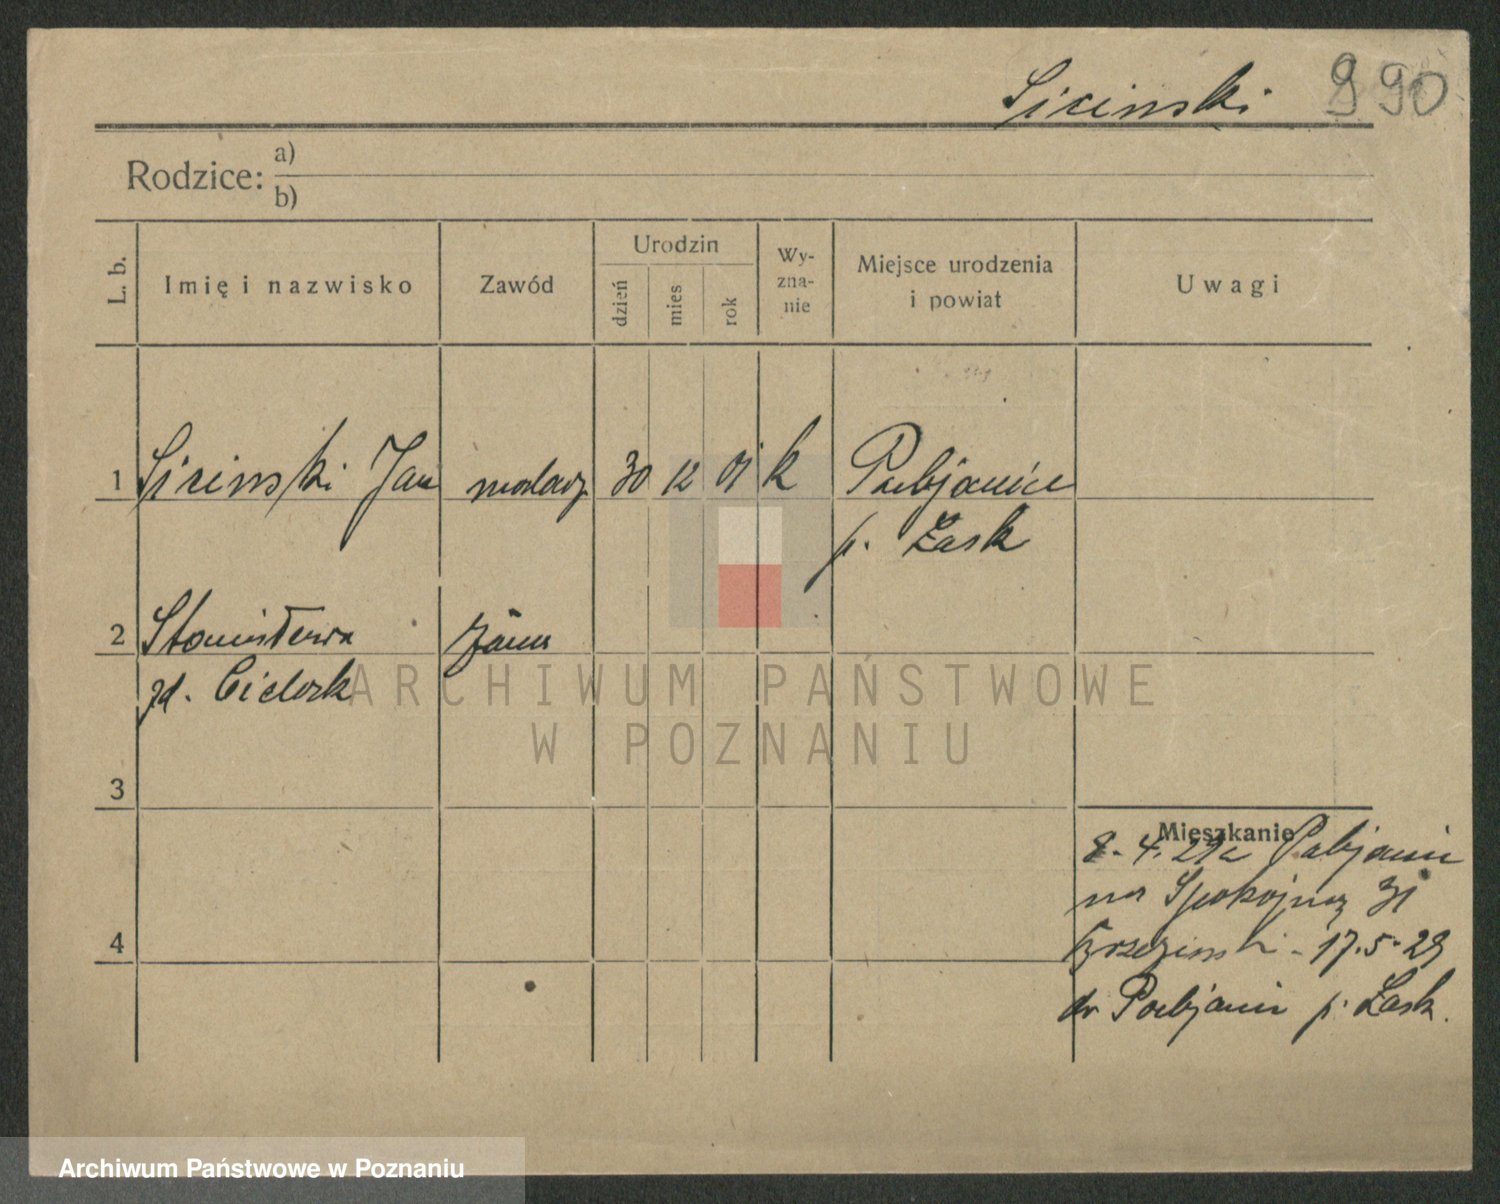 Sicinski 990
Rodzice: a)
b)
L. b. Imię i nazwisko Zawód Urodzin dzień mies rok Wy-zna-nie Miejsce urodzenia i powiat Uwagi
1 Sicinski Jan 30 12 01 k Pabjanice
p. Łask
2 Stanisława żona
zd. Cielosk
3
Mieszkanie
8. 4. 29 z Pabjanic
na Spokojną 31
Brzezinski - 17.5.29
do Pabjanic p. Łask.
4
ARCHIWUM PAŃSTWOWE
W POZNANIU
Archiwum Państwowe w Poznaniu